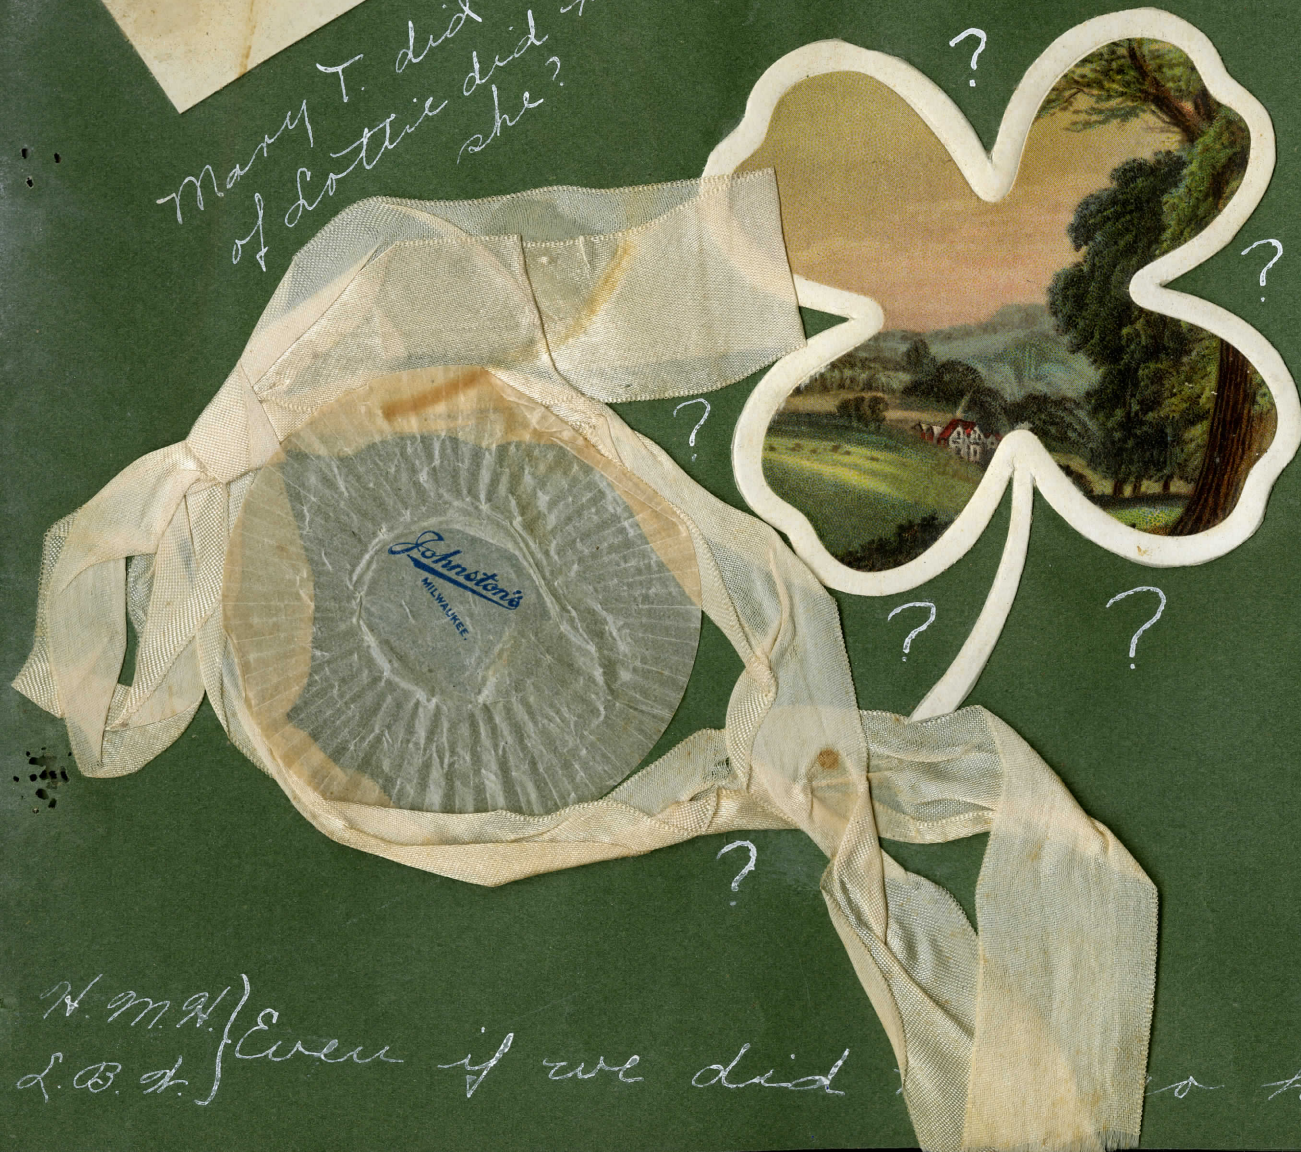 Mary T. did
of Lottie did
she?
?
?
?
Johnston's
MILWAUKEE.
?
?
?
H. M. H.
L. B. W.
} Even if we did